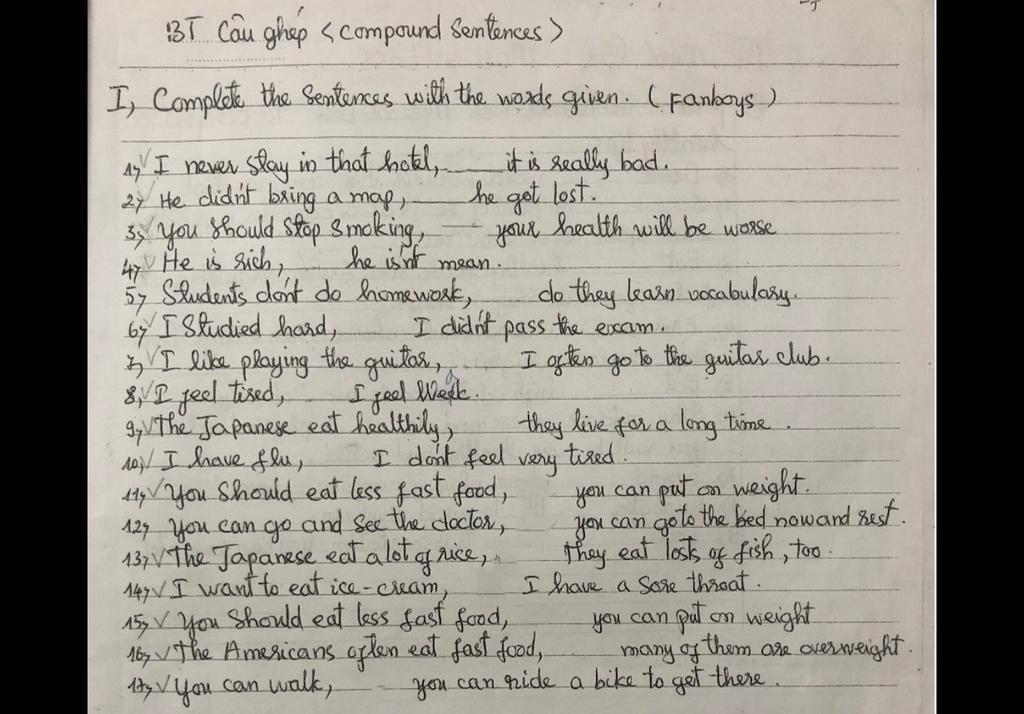 BT Câu ghép <Compound Sentences>
I, Complete the Sentences with the words given. (Fanboys)
1, I never stay in that hotel, ___ it is really bad.
2, He didn't bring a map, ___ he got lost.
3, You should stop smoking, ___ your health will be worse
4, He is rich, ___ he isn't mean.
5, Students don't do homework, do they learn vocabulary.
6, I studied hard, I didn't pass the exam.
7, I like playing the guitar, ... I often go to the guitar club.
8, I feel tired, I feel weak.
9, The Japanese eat healthily, they live for a long time.
10, I have flu, I don't feel very tired.
11, You should eat less fast food, you can put on weight.
12, You can go and see the doctor, you can go to the bed now and rest.
13, The Japanese eat a lot of rice, they eat losts of fish, too.
14, I want to eat ice-cream, I have a sore throat.
15, You should eat less fast food, you can put on weight
16, The Americans often eat fast food, many of them are overweight.
17, You can walk, you can ride a bike to get there.